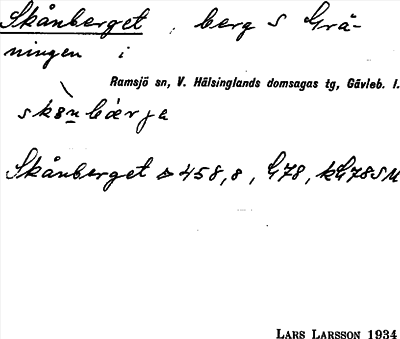 Skånberget, berg S Grä-
ningen i
Ramsjö sn, V. Hälsinglands domsagas tg, Gävleb. l.
skånbærja
Skånberget ▵ 458,8, G78, kG78SM
LARS LARSSON 1934